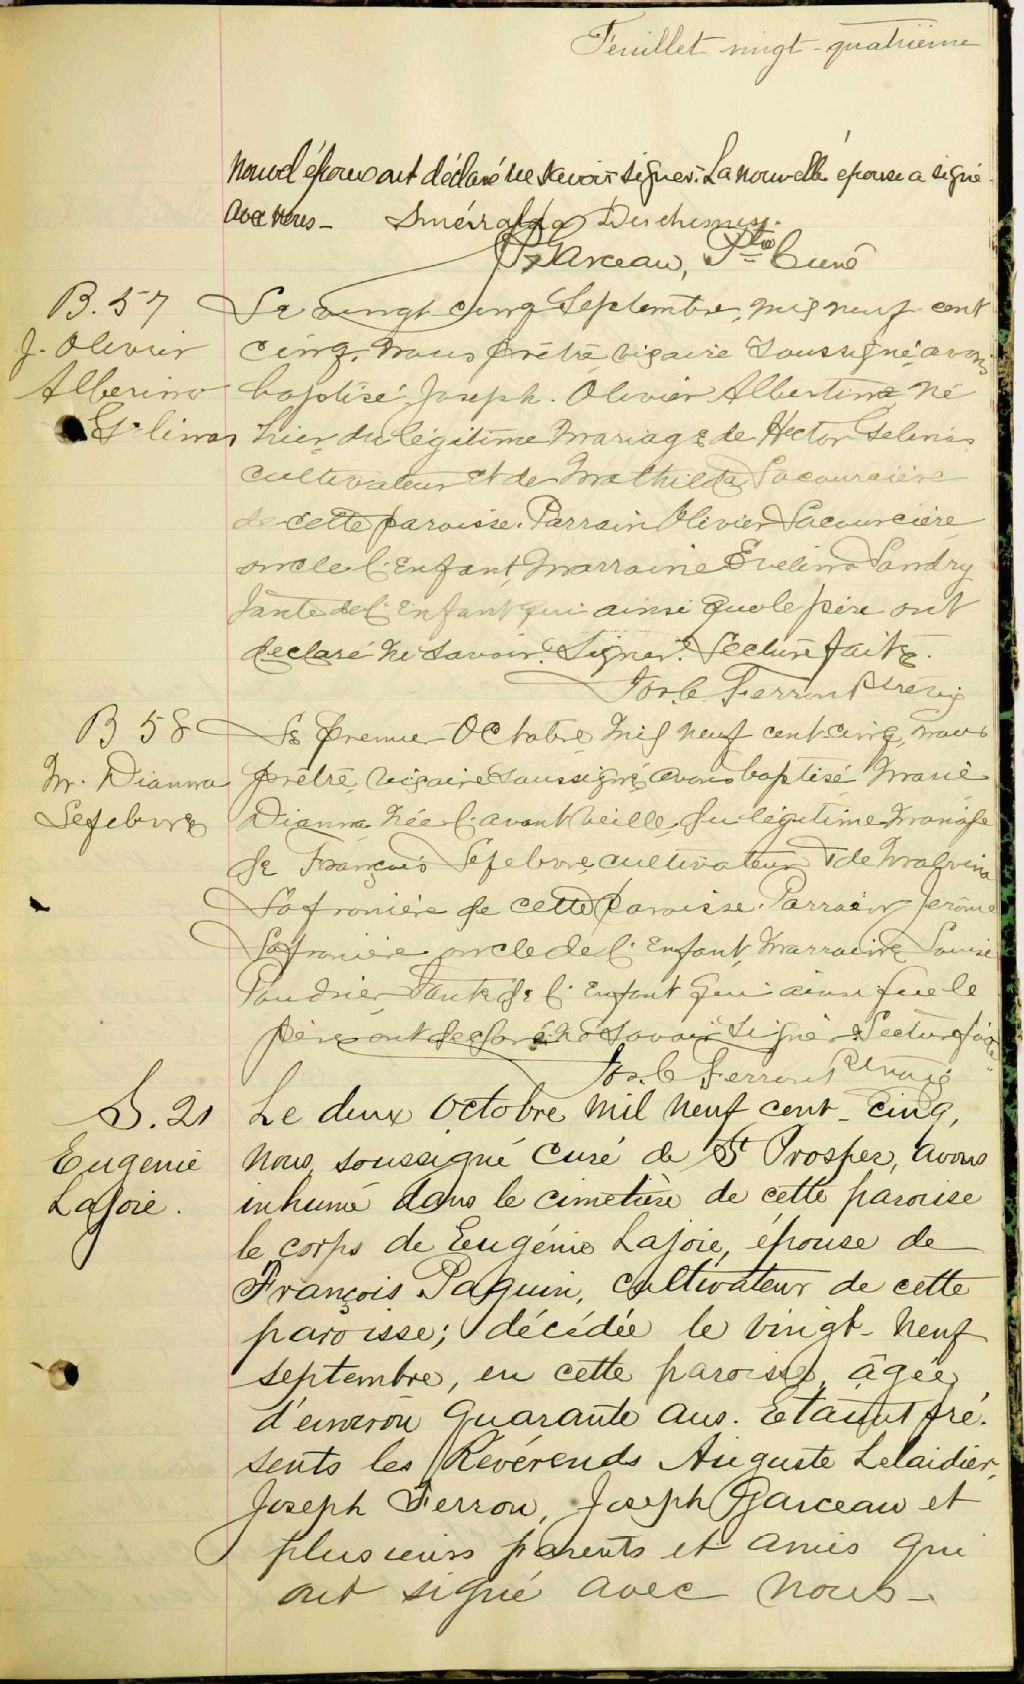 Feuillet vingt-quatrième
nouvel époux ont déclaré ne savoir signer. La nouvelle épouse a signé
avec nous - Smérralda Duchesney.
Garceau, Ptre Curé
B. 57
J. Olivier
Alberino
Gélinas
Le vingt cinq Septembre, mil neuf cent
cinq, nous prêtre vicaire soussigné, avons
baptisé Joseph. Olivier Albertino né
hier du légitime mariage de Hector Gelinas
cultivateur et de Mathilda Lacourcière
de cette paroisse. Parrain Olivier Lacourcière
oncle l'enfant, marraine Evelina Landry
tante de l'enfant qui ainsi que le père ont
declaré ne savoir signer. Lecture faite.
Jos. C. Ferron Ptre vic
B 58
M. Dianna
Lefebvre
Le premier Octobre mil neuf cent cinq, nous
prêtre, vicaire soussigné, avons baptisé Marie
Dianna née l'avant veille, du légitime mariage
de François Lefebvre cultivateur & de Malvina
Lafronière de cette paroisse. Parrain Jerôme
Lafronière oncle de l'enfant, marraine Louise
Baudrier tante de l'enfant qui ainsi que le
père ont declaré ne savoir signer. Lecture faite
Jos. C. Ferron Ptre vic
S. 21
Eugenie
Lajoie.
Le deux octobre mil neuf cent-cinq,
nous, soussigné curé de St Prosper, avons
inhumé dans le cimetière de cette paroisse
le corps de Eugénie Lajoie, épouse de
François Paquin, cultivateur de cette
paroisse; décédée le vingt-neuf
septembre, en cette paroisse, âgée
d'environ quarante ans. Etaient pré-
sents les Révérends Auguste Lelaidier,
Joseph Ferron, Joseph Garceau et
plusieurs parents et amis qui
ont signé avec nous-